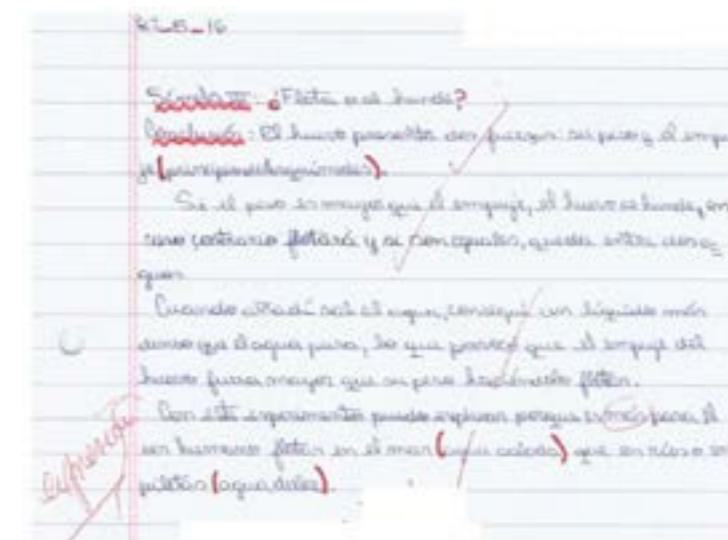 ¿Flota o se hunde?
Conclusión: El huevo presenta dos fuerzas: su peso y el empu
je (principio de Arquímedes).
Si el peso es mayor que el empuje, el huevo se hunde, en
caso contrario flotará y si son iguales, queda entre dos a=
guas.
Cuando añadí sal al agua, conseguí un líquido más
denso que el agua pura, lo que que el empuje del
huevo fuera mayor que su peso haciéndolo flotar.
Con este experimento puedo explicar porque es más para el
ser humano flotar en el mar (agua salada) que en ríos o en
(agua dulce).
expresión